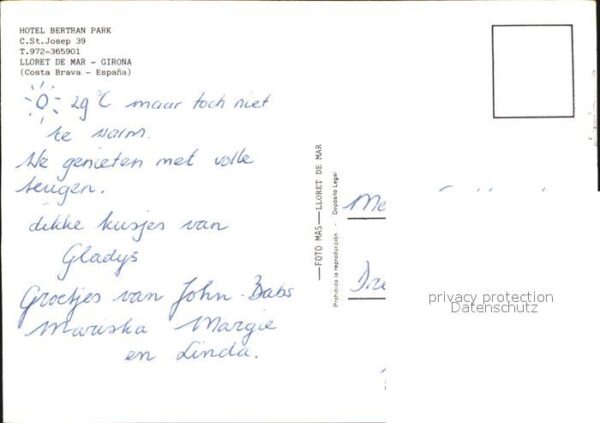 HOTEL BERTRAN PARK
C.St.Josep 39
T.972-365901
LLORET DE MAR - GIRONA
(Costa Brava - España)
29°C maar toch niet
te warm.
We genieten met volle
teugen.
dikke kusjes van
Gladys
Groetjes van John - Babs
Mariska Margie
en Linda.
FOTO MAS — LLORET DE MAR
Prohibida la reproducción - Depósito Legal
privacy protection
Datenschutz